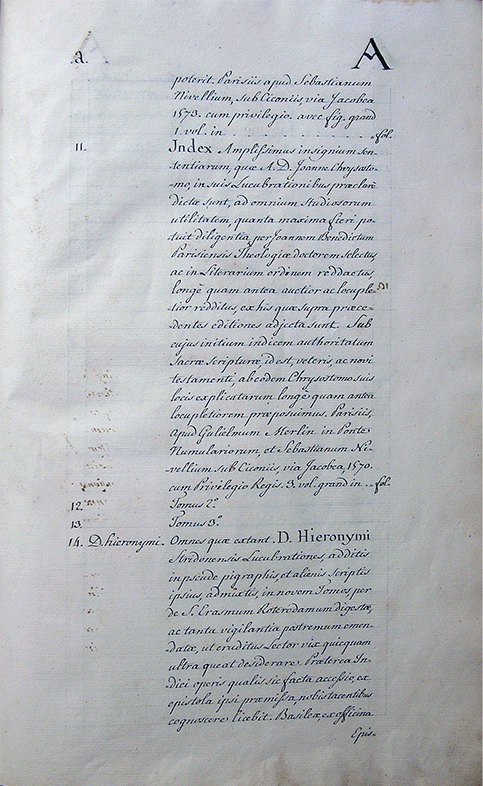 .a. A
poterit. Parisiis apud Sebastianum
Nivellium, sub Ciconiis, via Jacobea
1573. cum privilegio. avec fig. grand
1. vol. in . . . . . . . . . . . fol.
11. Index Amplissimus insignium sen-
-tentiarum, quæ A. D. Joanne Chrysosto-
-mo, in suis Lucubrationibus præclarè
dictæ sunt, ad omnium Studiosorum
utilitatem, quanta maxima fieri po-
-tuit diligentia per Joannem Benedictum
Parisiensis Theologiæ doctorem selectus
ac in Literarium ordinem reddactus,
longè quam antea auctior ac locuple-
-tior redditus, ex his quæ supra præce-
-dentes editiones adjecta sunt. Sub
cujus initium indicem authoritatum
Sacræ Scripturæ, id est, veteris, ac novi
testamenti, ab eodem Chrysostomo suis
locis explicatarum longè quam antea
locupletiorem præposuimus. Parisiis,
apud Gulielmum Merlin in Ponte
Numulariorum, et Sebastianum Ni-
-vellium sub Ciconiis, via Jacobea, 1570.
cum Privilegio Regis. 3. vol. grand in .. fol.
12. Tomus 2º
13. Tomus 3º
14. D. hieronymi. Omnes quæ extant. D. Hieronymi
Stridonensis Lucubrationes, additis
in pseude pigraphis, et alienis scriptis
ipsius, admixtis, in novem Tomos per
de S. Erasmum Roterodamum digestæ,
ac tanta vigilantia postremum emen-
-datæ, ut eruditus Lector vix quicquam
ultra queat desiderare. Præterea In-
-dici operis qualis sic facta accessio, ex
epistola ipsi præmissa, nobis tacentibus
cognoscere licebit. Basileæ, ex officina
Epis-